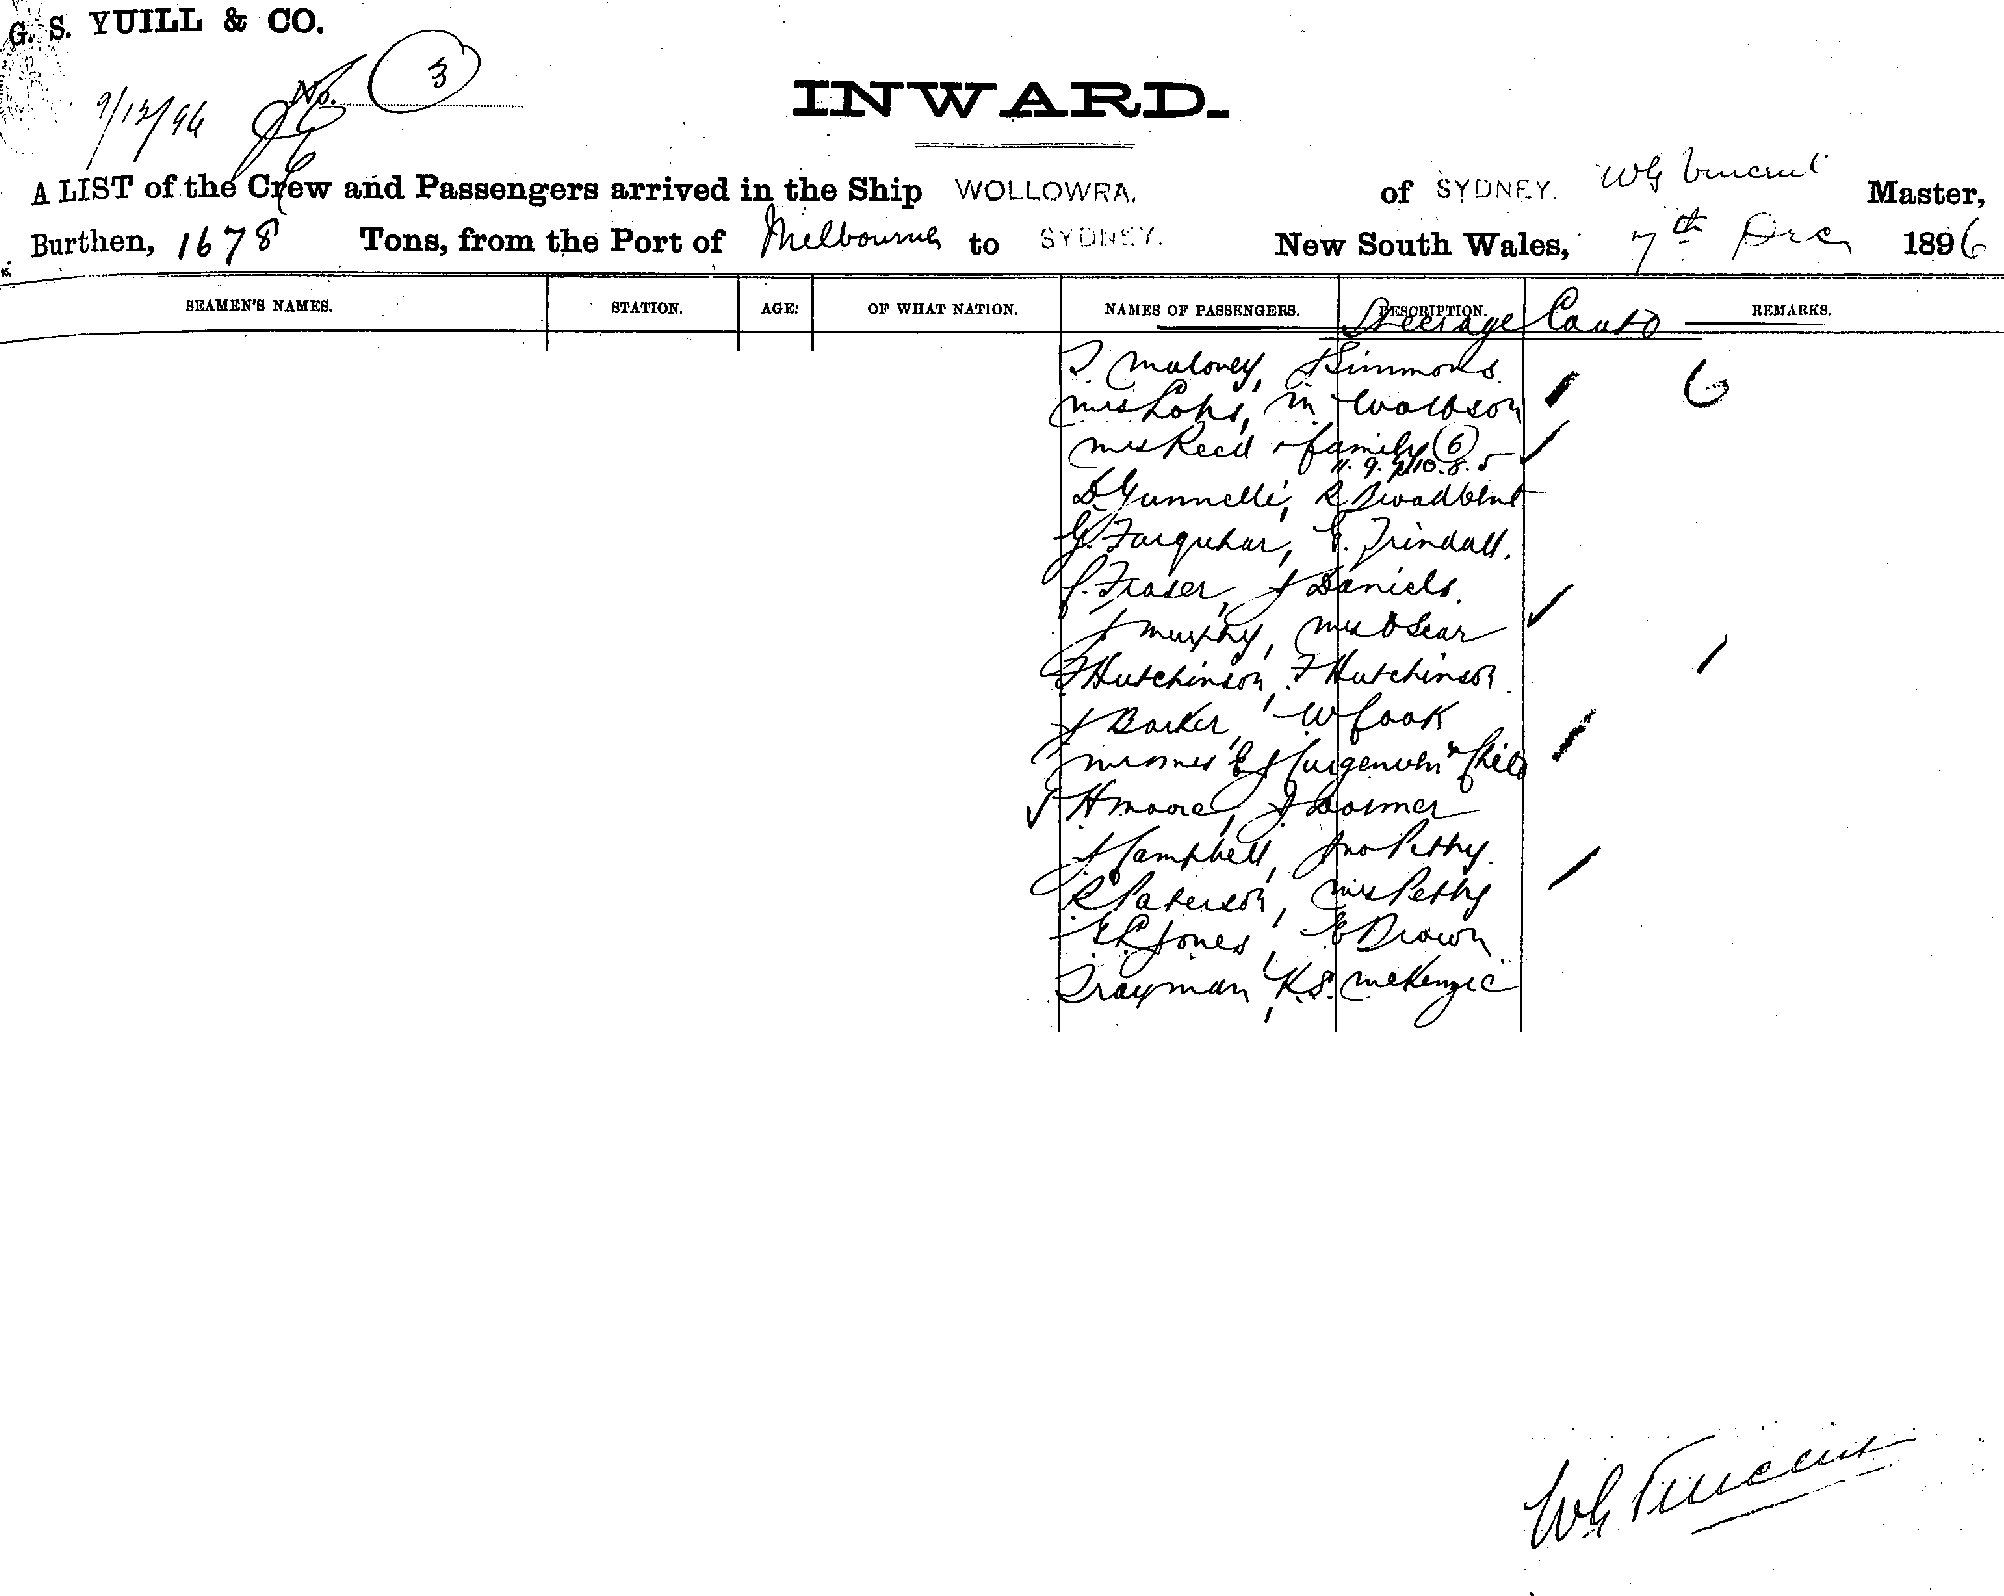 G. S. YUILL & CO.
9/12/96 No. 3
INWARD.
A LIST of the Crew and Passengers arrived in the Ship WOLLOWRA. of SYDNEY. WG Vincent Master,
Burthen, 1678 Tons, from the Port of Melbourne to SYDNEY. New South Wales, 7th Dec 1896
SEAMEN'S NAMES. STATION. AGE: OF WHAT NATION. NAMES OF PASSENGERS. DESCRIPTION. REMARKS.
Steerage Contd
T. Maloney, J Simmons. 6
Mrs Lohs, M Watson
Mrs Reed & family 6
11. 9. 10. 8. 5
D. Gunnelli, R Broadbent
G. Farquhar, E. Trindall.
C. Fraser, J Daniels.
J Murphy, Mrs OSear
F Hutchinson, F Hutchinson
J Barker, W Cook
E J Curgenven & Child
H Moore, J Dormer
J Campbell, Jno Petty.
R Paterson, Mrs Petty
E L Jones, E Brown
Trayman, K.S. McKenzie
WG Vincent